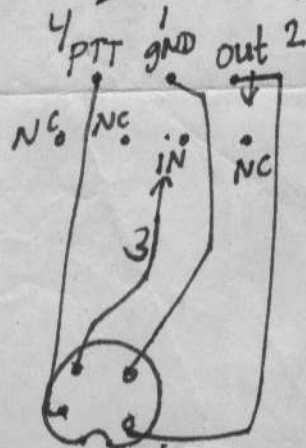 4 1 2
PTT gND out
NC NC IN NC
3